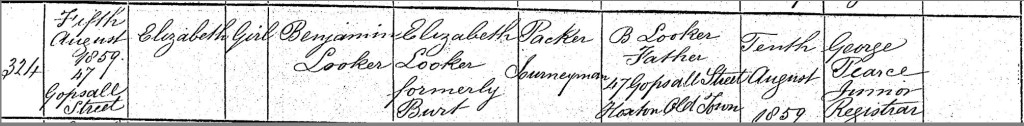 324
Fifth
August
1859
47
Gopsall
Street
Elizabeth
Girl
Benjamin
Looker
Elizabeth
Looker
formerly
Burt
Packer
Journeyman
B Looker
Father
47 Gopsall Street
Hoxton Old Town
Tenth
August
1859
George
Pearce
Junior
Registrar